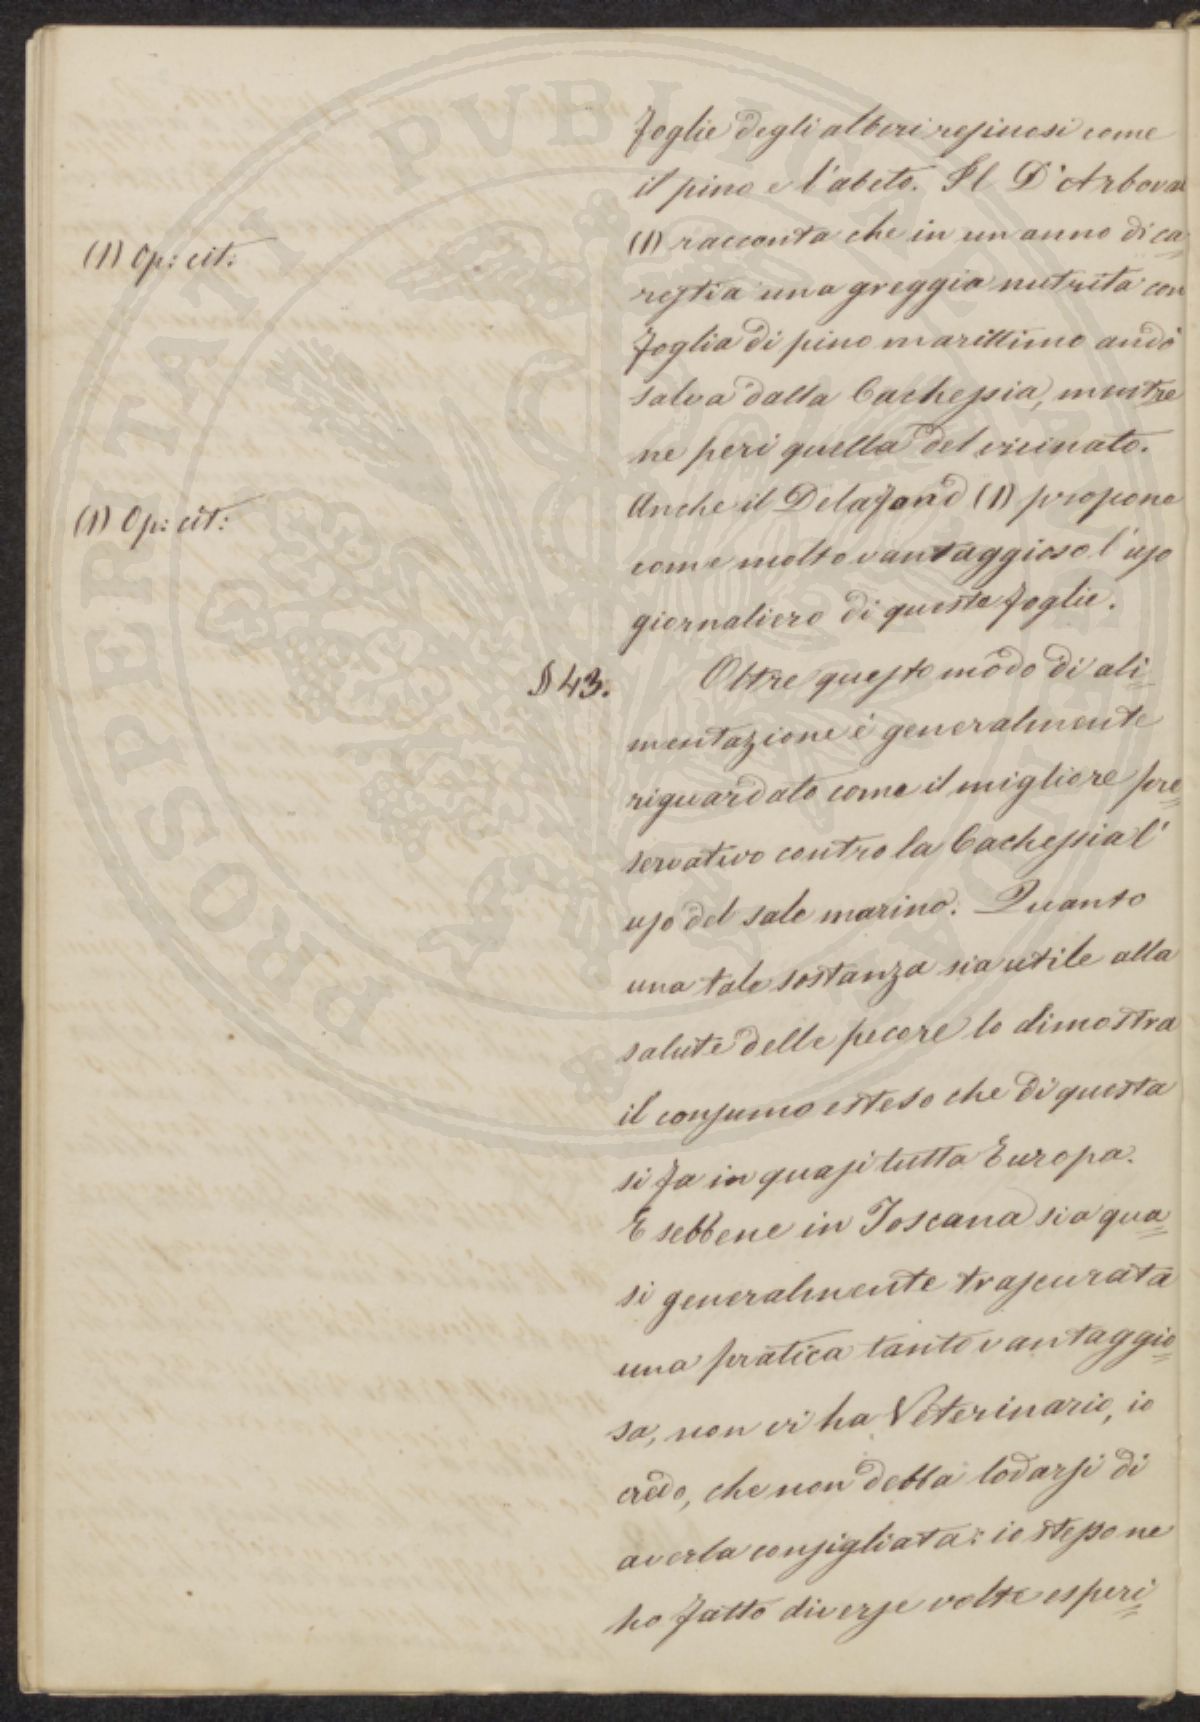 foglie degli alberi resinosi come
il pino e l'abeto. Il D'Arboval
(1) Op: cit:
(1) racconta che in un anno di ca-
restia una greggia nutrita con
foglia di pino marittimo andò
salva dalla Cachessia, mentre
ne perì quella del vicinato.
(1) Op: cit:
Anche il Delafond (1) propone
come molto vantaggioso l'uso
giornaliero di queste foglie.
§ 43.
Oltre questo modo di ali-
mentazione è generalmente
riguardato come il migliore pre=
servativo contro la Cachessia l'
uso del sale marino. Quanto
una tale sostanza sia utile alla
salute delle pecore lo dimostra
il consumo esteso che di questa
si fa in quasi tutta Europa.
E sebbene in Toscana sia qua=
si generalmente trascurata
una pratica tanto vantaggio=
sa, non vi ha Veterinario, io
credo, che non debba lodarsi di
averla consigliata: io stesso ne
ho fatto diverse volte esperi=
PROSPERITATI PVBLICAE AVGENDAE